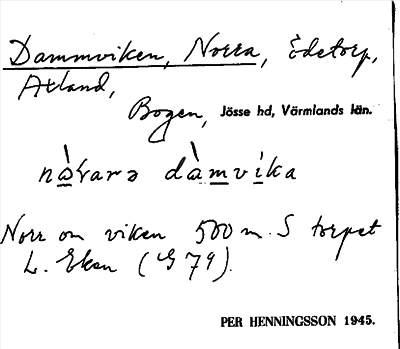 Dammviken, Norra, Ödetorp,
Axland,
Bogen, Jösse hd, Värmlands län.
nàrarə dàmvika
Norr om viken 500 m. S torpet
L. Eken (G 79).
PER HENNINGSSON 1945.